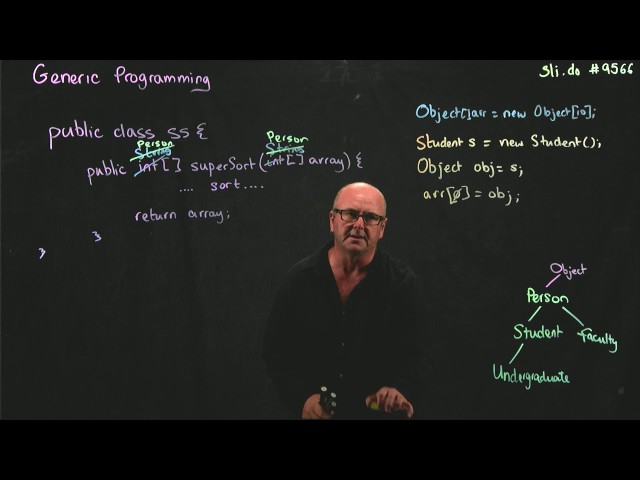 Generic Programming
sli.do #9566
public class ss {
Person Person
String String
public int[] superSort(int[] array) {
.... sort ....
return array;
}
}
Object[] arr = new Object[10];
Student s = new Student();
Object obj = s;
arr[0] = obj;
Object
Person
Student Faculty
Undergraduate